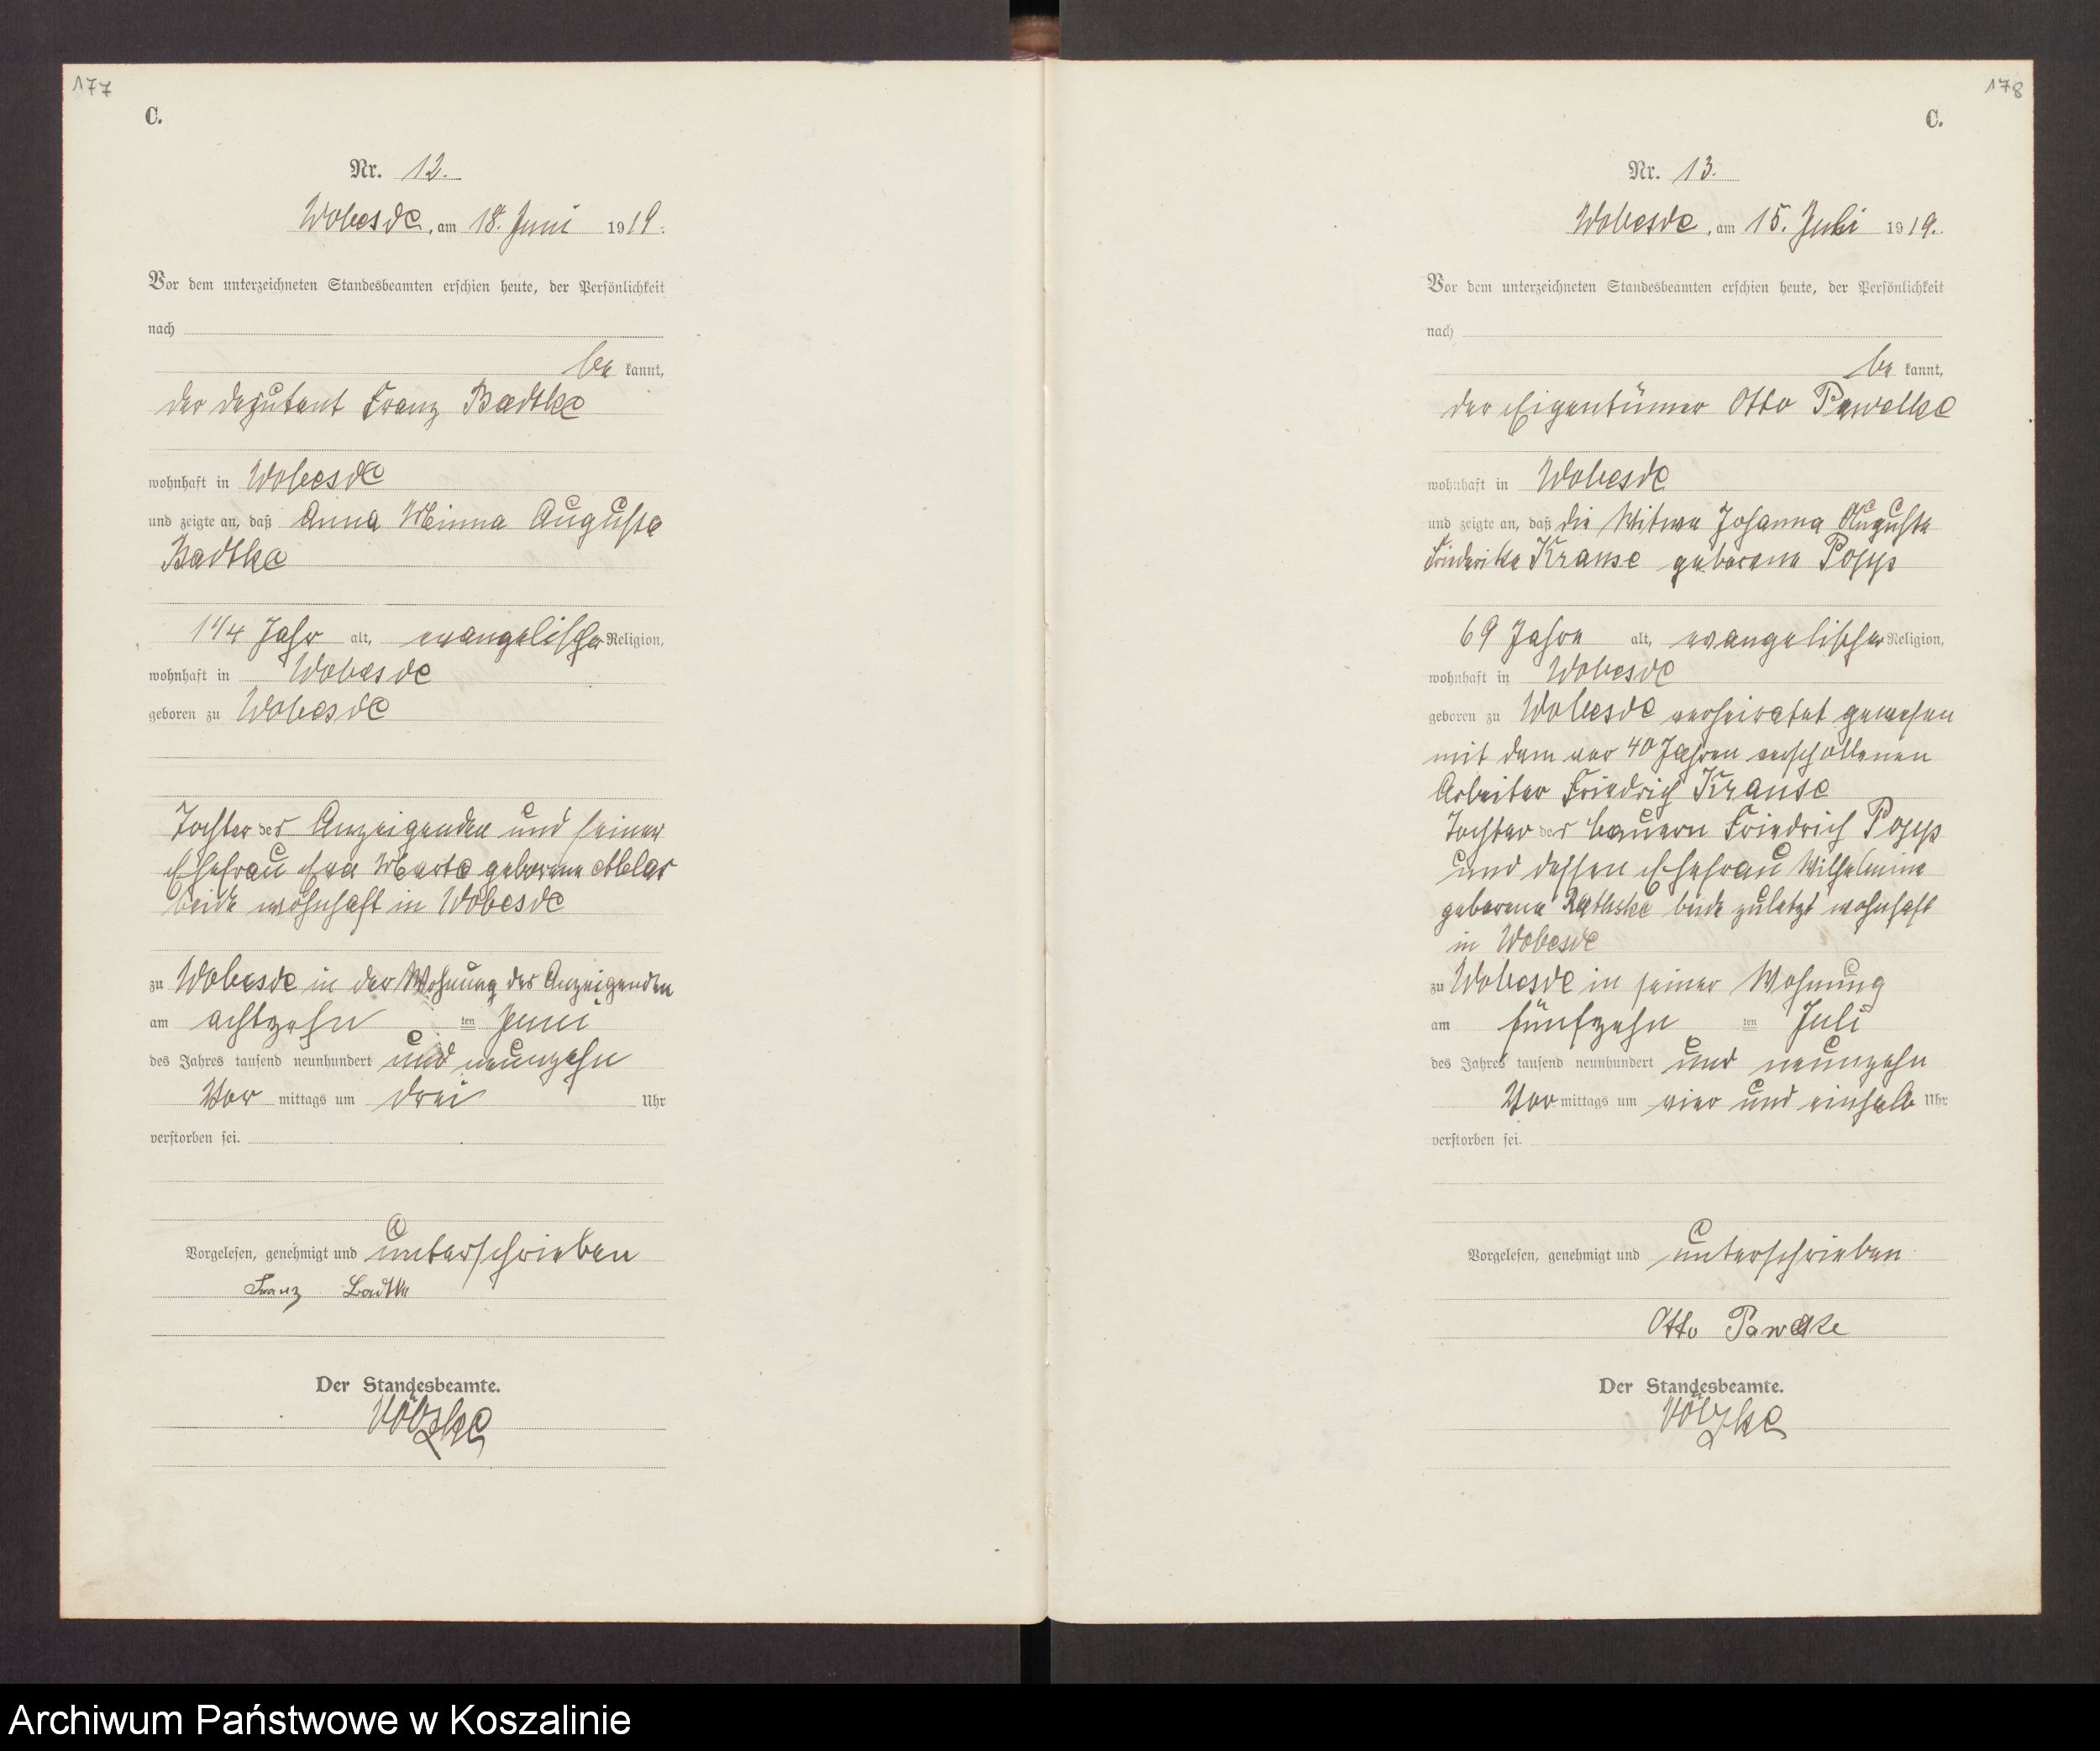 177
C.
Nr. 12.
Wobesde, am 18. Juni 1919.
Vor dem unterzeichneten Standesbeamten erschien heute, der Persönlichkeit
nach
be kannt,
der Deputant Franz Badtke
wohnhaft in Wobesde
und zeigte an, daß Anna Minna Auguste
Badtke
1 1/4 Jahr alt, evangelischer Religion,
wohnhaft in Wobesde
geboren zu Wobesde
Tochter des Anzeigenden und seiner
Ehefrau Marta geborene
beide wohnhaft in Wobesde
zu Wobesde in der Wohnung des Anzeigenden
am achtzehn ten Juni
des Jahres tausend neunhundert und neunzehn
Vor mittags um drei Uhr
verstorben sei.
Vorgelesen, genehmigt und unterschrieben
Franz Badtke
Der Standesbeamte.
178
C.
Nr. 13.
Wobesde, am 15. Juli 1919.
Vor dem unterzeichneten Standesbeamten erschien heute, der Persönlichkeit
nach
be kannt,
der Eigentümer Otto Pawelke
wohnhaft in Wobesde
und zeigte an, daß die Witwe Johanna Auguste
Friederike Krause geborene Popp
69 Jahre alt, evangelischer Religion,
wohnhaft in Wobesde
geboren zu Wobesde verheiratet gewesen
mit dem vor 40 Jahren verschollenen
Arbeiter Friedrich Krause
Tochter des Bauern Friedrich Popp
und dessen Ehefrau Wilhelmine
geborene Rathske beide zuletzt wohnhaft
in Wobesde
zu Wobesde in seiner Wohnung
am fünfzehn ten Juli
des Jahres tausend neunhundert und neunzehn
Vor mittags um vier und einhalb Uhr
verstorben sei.
Vorgelesen, genehmigt und unterschrieben
Otto Pawelke
Der Standesbeamte.
Archiwum Państwowe w Koszalinie